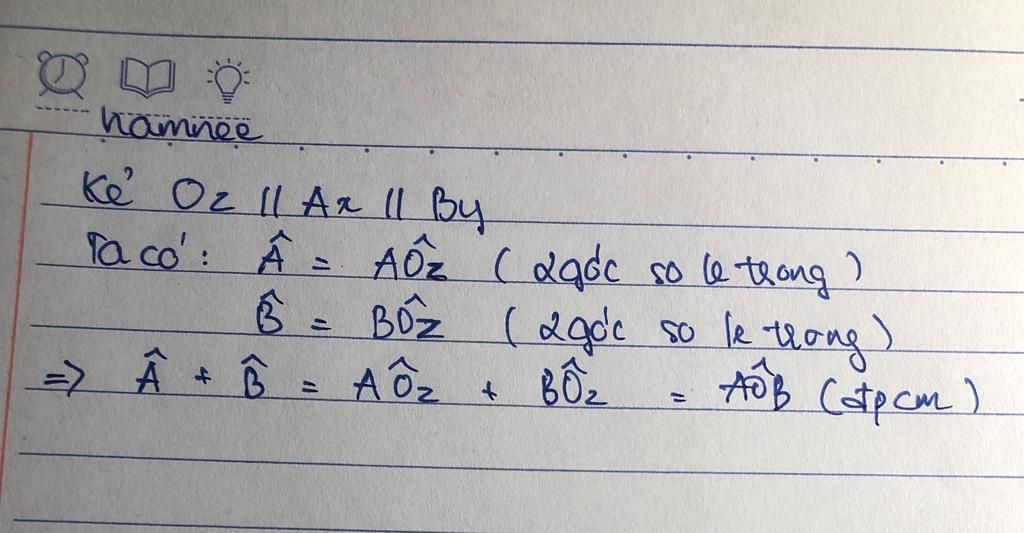 hamnee
Kẻ Oz // Ax // By
Ta có: Â = AÔz ( 2góc so le trong )
B̂ = BÔz ( 2góc so le trong )
=> Â + B̂ = AÔz + BÔz = AÔB (đpcm)